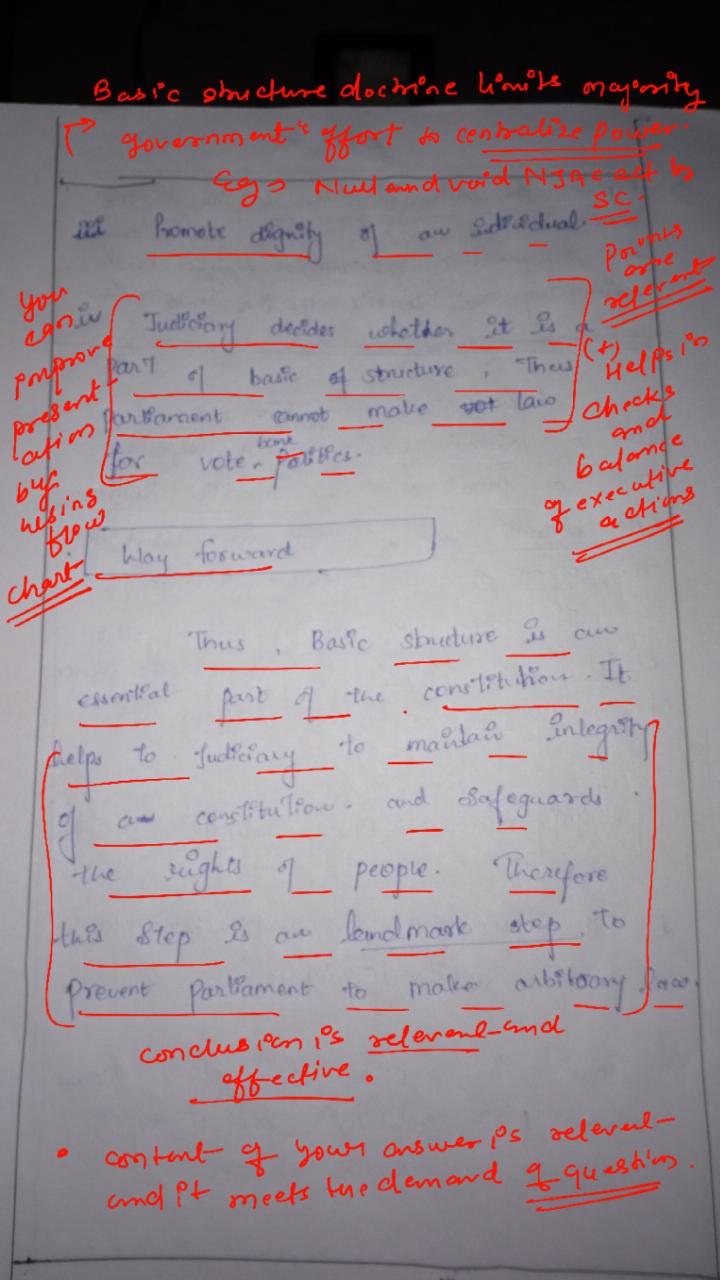 Basic structure doctrine limits majority
government's effort to centralize power.
Eg → Null and void NJAC act by
SC.
iii Promote dignity of an individual.
Points
are
relevent
You
can
improve
present-
ation
by
using
flow
chart
iv Judiciary decides whether it is a
part of basic of structure, Thus
parliament cannot make law
for vote bank politics.
(+)
Helps in
checks
and
balance
of executive
actions
Way forward
Thus, Basic structure is an
essential part of the constitution. It
helps to Judiciary to maintain integrity
of a constitution. and Safeguards
the rights of people. Therefore
this Step is an landmark step To
prevent Parliament to make arbitoary law.
conclusion is relevent and
effective.
• content of your answer is relevent
and it meets the demand of question.